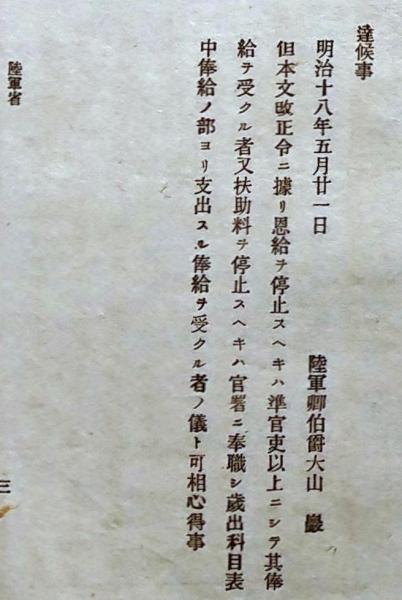 達候事
明治十八年五月廿一日
陸軍卿伯爵大山 巖
但本文改正令ニ據リ恩給ヲ停止スヘキハ準官吏以上ニシテ其俸
給ヲ受クル者又扶助料ヲ停止スヘキハ官署ニ奉職シ歲出科目表
中俸給ノ部ヨリ支出スル俸給ヲ受クル者ノ儀ト可相心得事
陸軍省
三